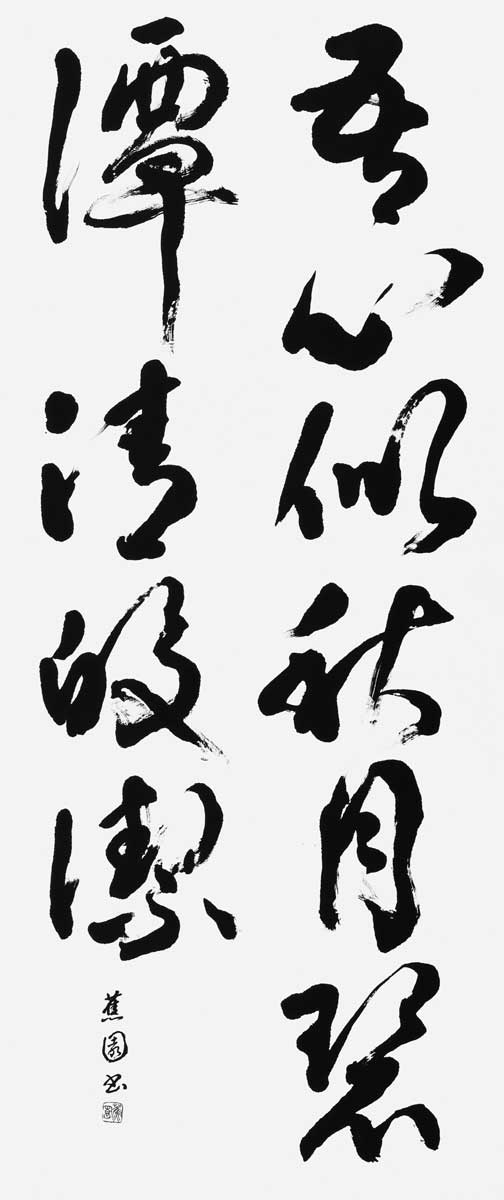 吾心似秋月碧
潭清皎潔
蕉園書